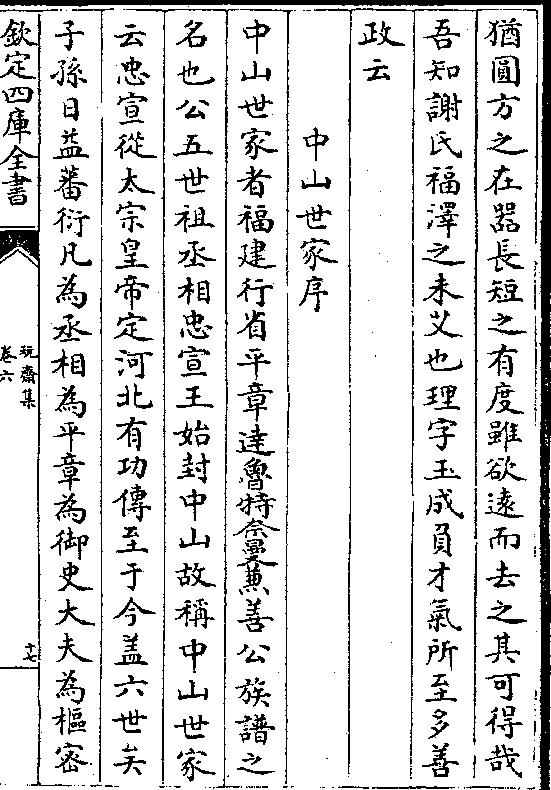 猶圓方之在器長短之有度雖欲遠而去之其可得哉
吾知謝氏福澤之未艾也理字玉成負才氣所至多善
政云
中山世家序
中山世家者福建行省平章達魯特奈曼兼善公族譜之
名也公五世祖丞相忠宣王始封中山故稱中山世家
云忠宣從太宗皇帝定河北有功傳至于今盖六世矣
子孫日益蕃衍凡為丞相為平章為御史大夫為樞密
欽定四庫全書
玩齋集
卷六
十七